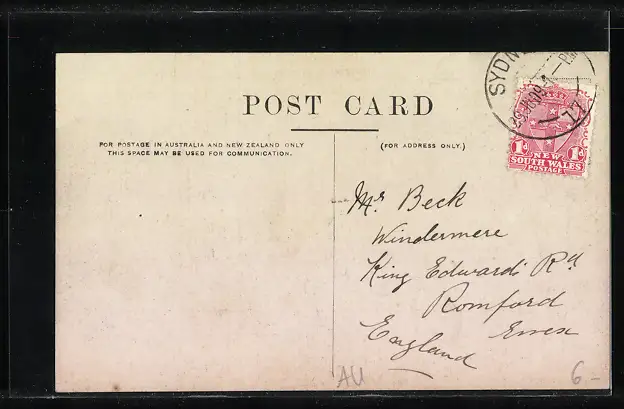 POST CARD
FOR POSTAGE IN AUSTRALIA AND NEW ZEALAND ONLY
THIS SPACE MAY BE USED FOR COMMUNICATION.
(FOR ADDRESS ONLY.)
SYDN
1d NEW 1d
SOUTH WALES
POSTAGE
Mr Beck
Windermere
King Edwards Rd
Romford
Essex
England
AU
6-